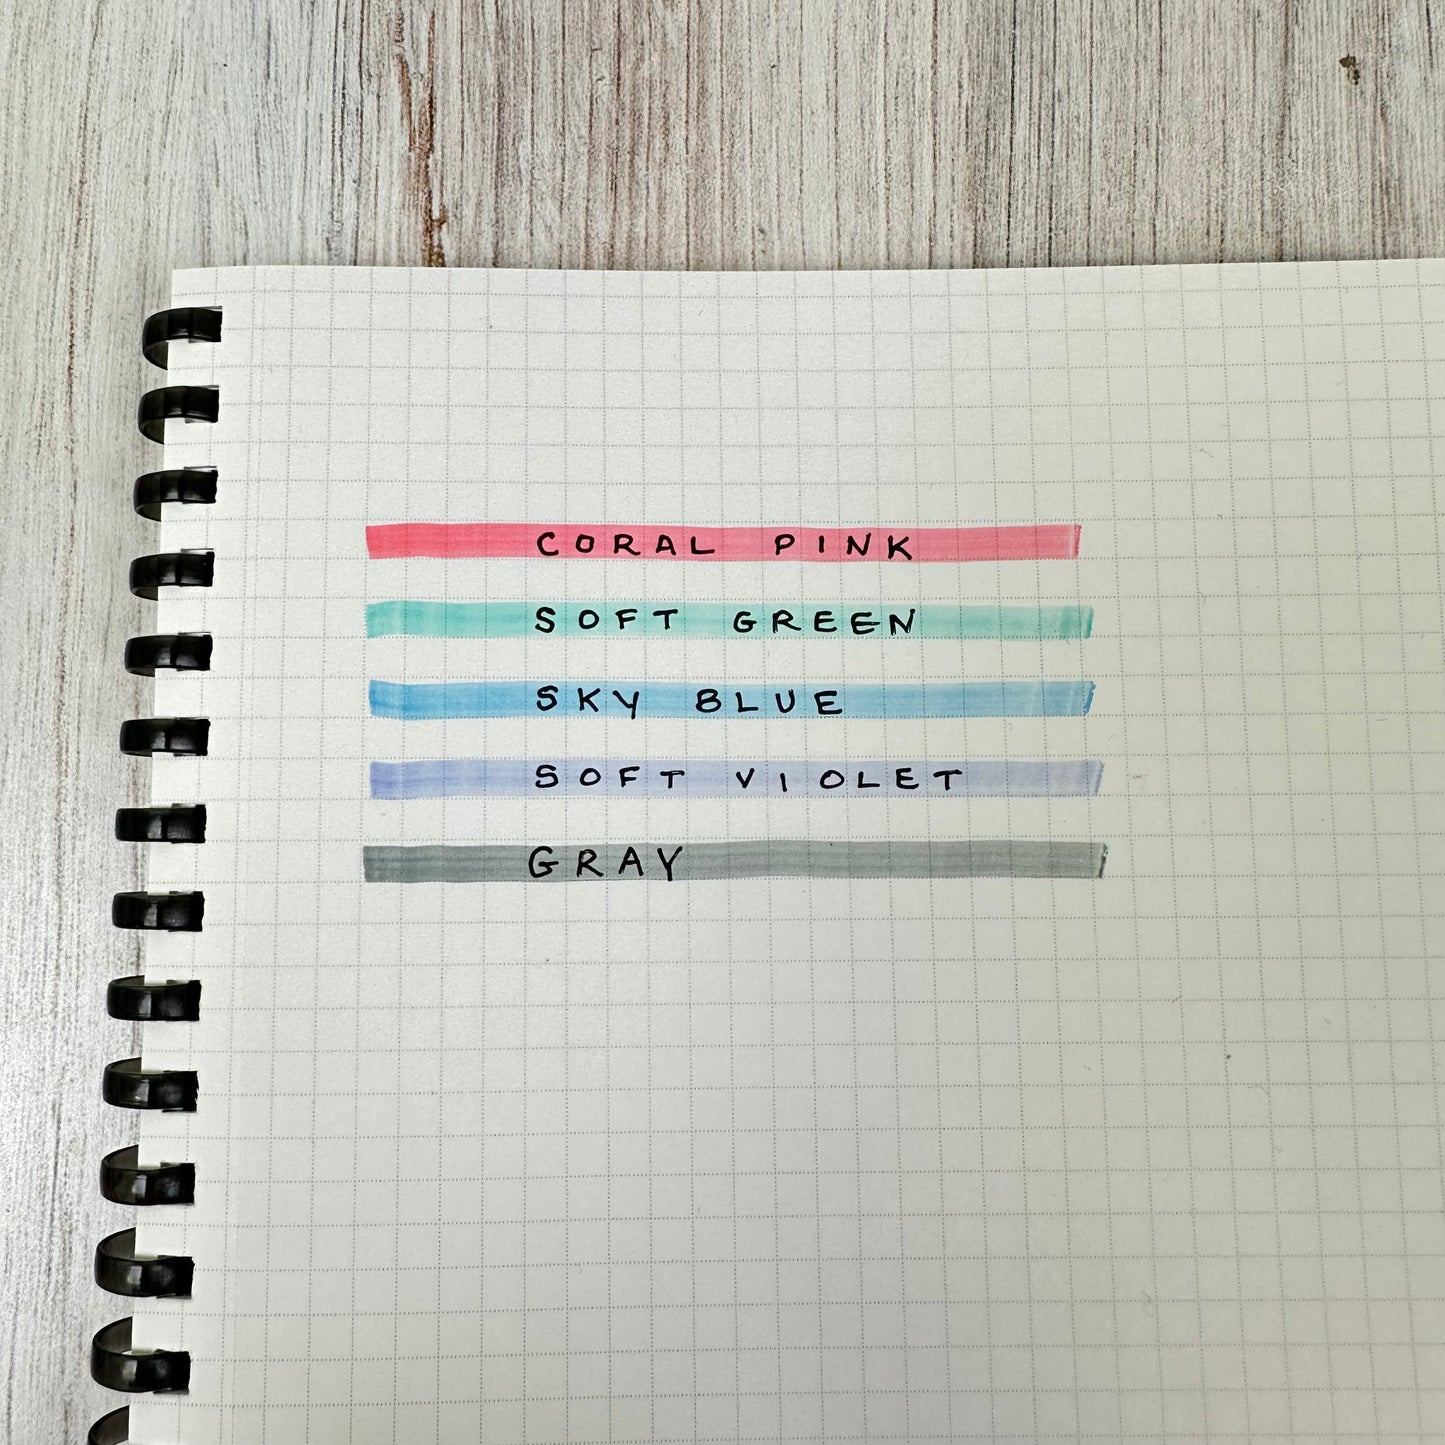 CORAL PINK
SOFT GREEN
SKY BLUE
SOFT VIOLET
GRAY